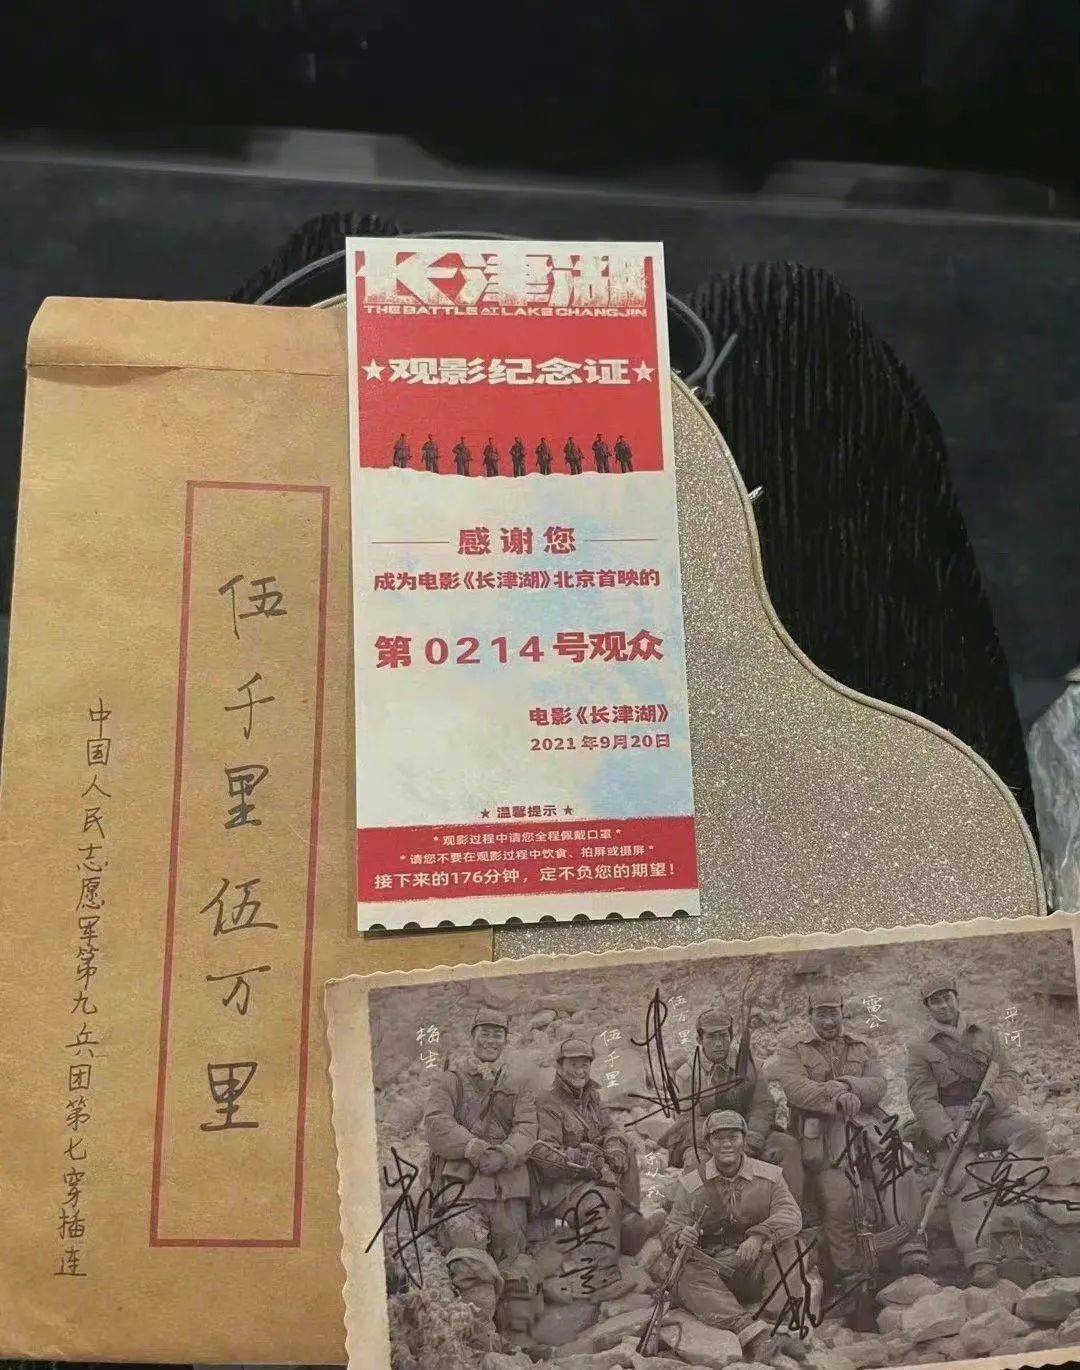 伍千里伍万里
中国人民志愿军第九兵团第七穿插连
长津湖
THE BATTLE AT LAKE CHANGJIN
★观影纪念证★
感谢您
成为电影《长津湖》北京首映的
第0214号观众
电影《长津湖》
2021年9月20日
★ 温馨提示 ★
* 观影过程中请您全程佩戴口罩 *
* 请您不要在观影过程中饮食、拍屏或摄屏 *
接下来的176分钟，定不负您的期望！
梅生
伍千里
伍万里
雷公
平河